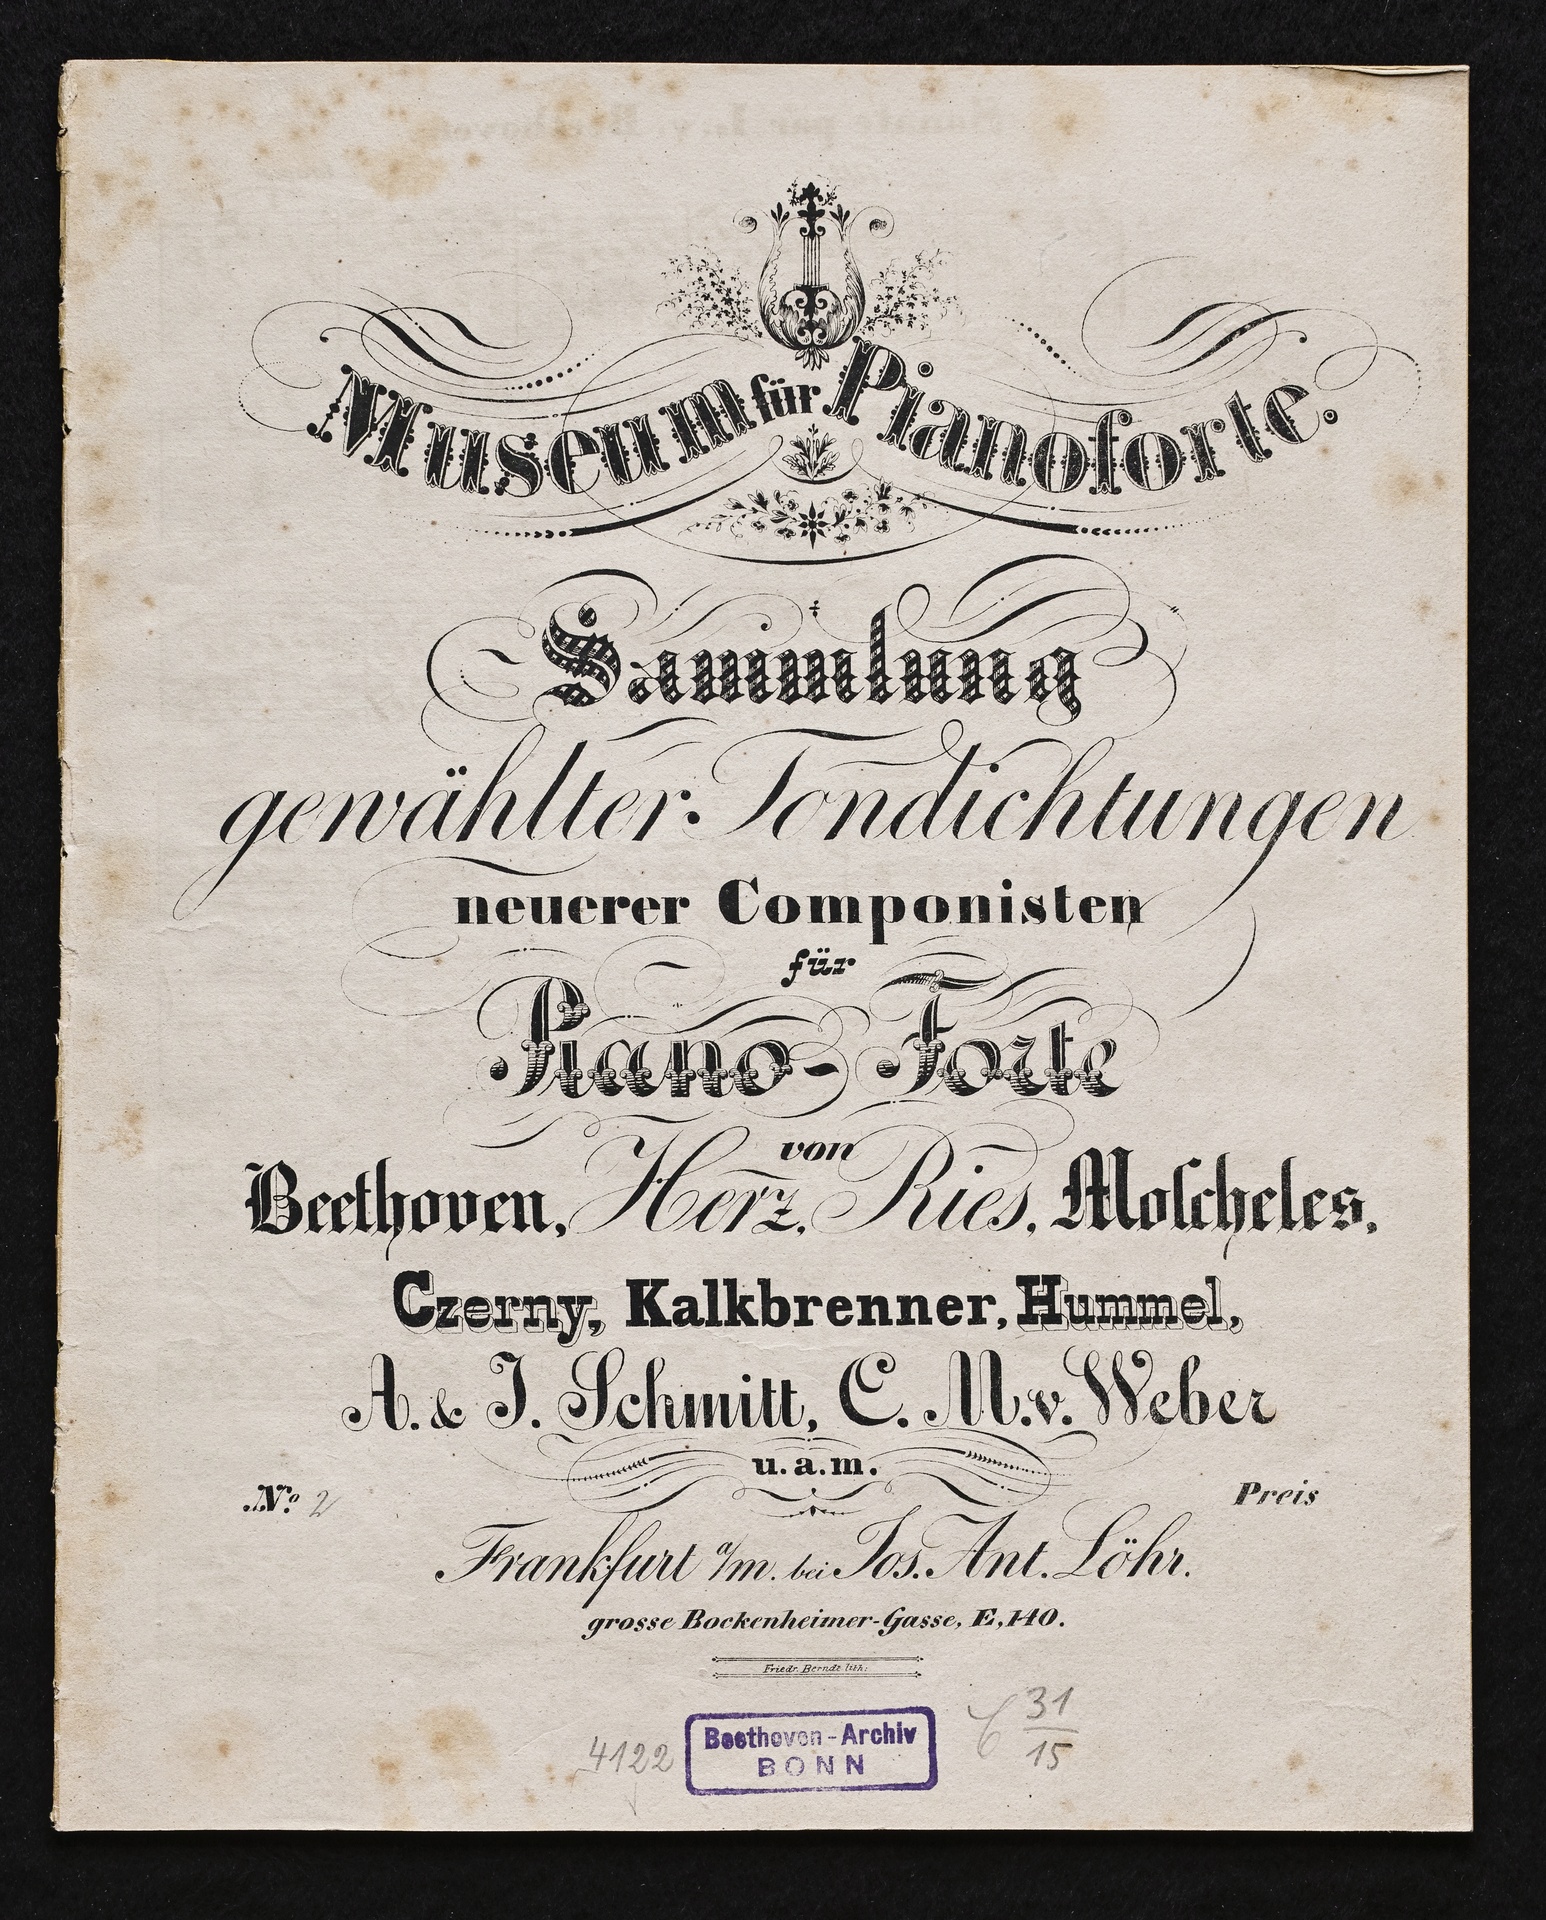 Museum für Pianoforte.
Sammlung
gewählter Tondichtungen
neuerer Componisten
für
Piano-Forte
von
Beethoven, Herz, Ries, Moſcheles,
Czerny, Kalkbrenner, Hummel,
A. & J. Schmitt, C. M. v. Weber
u. a. m.
No. 2 Preis
Frankfurt a/m. bei Jos. Ant. Löhr.
grosse Bockenheimer-Gasse, E, 140.
Friedr. Berndt lith:
4122
Beethoven-Archiv
BONN
C 31
15